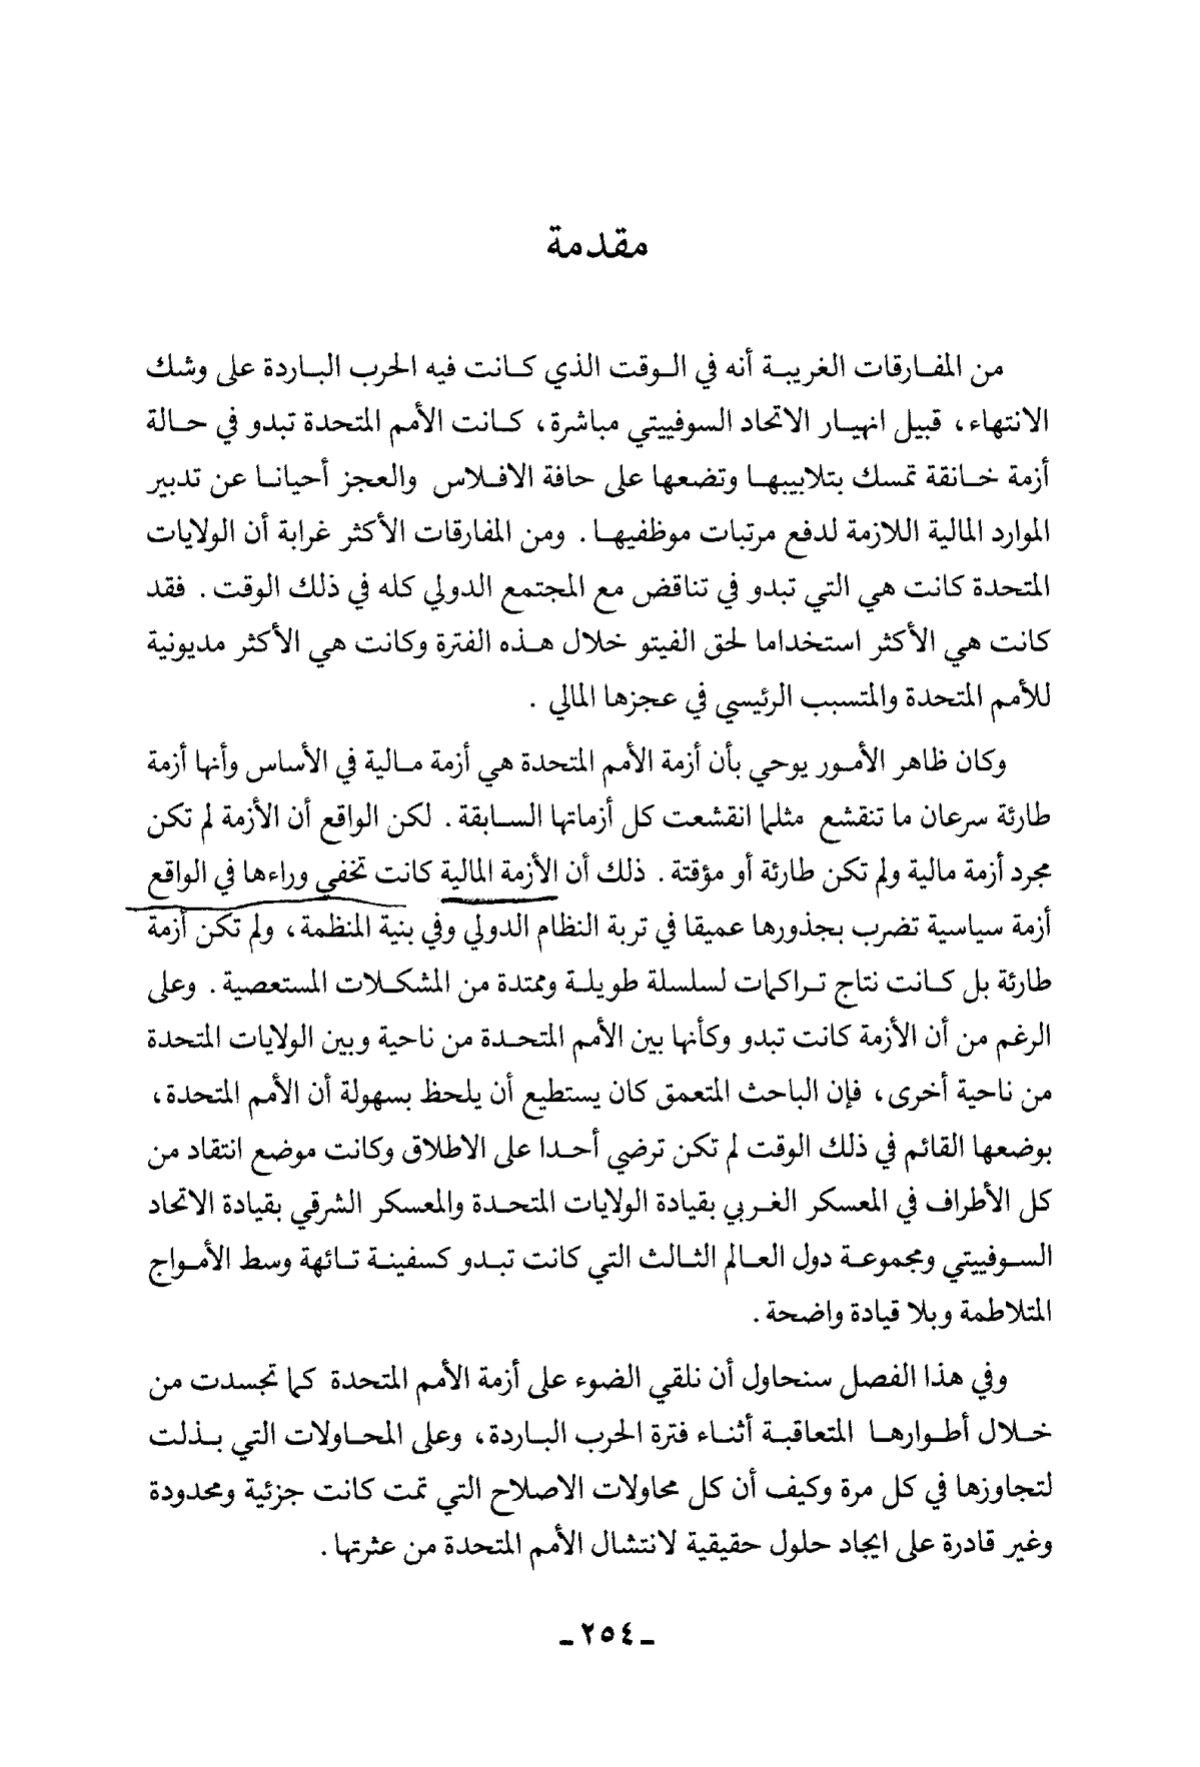 مقدمة
من المفارقات الغريبة أنه في الوقت الذي كانت فيه الحرب الباردة على وشك
الانتهاء، قبيل انهيار الاتحاد السوفييتي مباشرة، كانت الأمم المتحدة تبدو في حالة
أزمة خانقة تمسك بتلابيبها وتضعها على حافة الافلاس والعجز أحيانا عن تدبير
الموارد المالية اللازمة لدفع مرتبات موظفيها. ومن المفارقات الأكثر غرابة أن الولايات
المتحدة كانت هي التي تبدو في تناقض مع المجتمع الدولي كله في ذلك الوقت. فقد
كانت هي الأكثر استخداما لحق الفيتو خلال هذه الفترة وكانت هي الأكثر مديونية
للأمم المتحدة والمتسبب الرئيسي في عجزها المالي.
وكان ظاهر الأمور يوحي بأن أزمة الأمم المتحدة هي أزمة مالية في الأساس وأنها أزمة
طارئة سرعان ما تنقشع مثلما انقشعت كل أزماتها السابقة. لكن الواقع أن الأزمة لم تكن
مجرد أزمة مالية ولم تكن طارئة أو مؤقتة. ذلك أن الأزمة المالية كانت تخفي وراءها في الواقع
أزمة سياسية تضرب بجذورها عميقا في تربة النظام الدولي وفي بنية المنظمة، ولم تكن أزمة
طارئة بل كانت نتاج تراكمات لسلسلة طويلة وممتدة من المشكلات المستعصية. وعلى
الرغم من أن الأزمة كانت تبدو وكأنها بين الأمم المتحدة من ناحية وبين الولايات المتحدة
من ناحية أخرى، فإن الباحث المتعمق كان يستطيع أن يلحظ بسهولة أن الأمم المتحدة،
بوضعها القائم في ذلك الوقت لم تكن ترضي أحدا على الاطلاق وكانت موضع انتقاد من
كل الأطراف في المعسكر الغربي بقيادة الولايات المتحدة والمعسكر الشرقي بقيادة الاتحاد
السوفييتي ومجموعة دول العالم الثالث التي كانت تبدو كسفينة تائهة وسط الأمواج
المتلاطمة وبلا قيادة واضحة.
وفي هذا الفصل سنحاول أن نلقي الضوء على أزمة الأمم المتحدة كما تجسدت من
خلال أطوارها المتعاقبة أثناء فترة الحرب الباردة، وعلى المحاولات التي بذلت
لتجاوزها في كل مرة وكيف أن كل محاولات الاصلاح التي تمت كانت جزئية ومحدودة
وغير قادرة على ايجاد حلول حقيقية لانتشال الأمم المتحدة من عثرتها.
ـ ٢٥٤ ـ